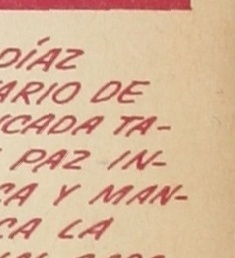 DÍAZ
ARIO DE
ICADA TA-
PAZ IN-
CA Y MAN-
CA LA